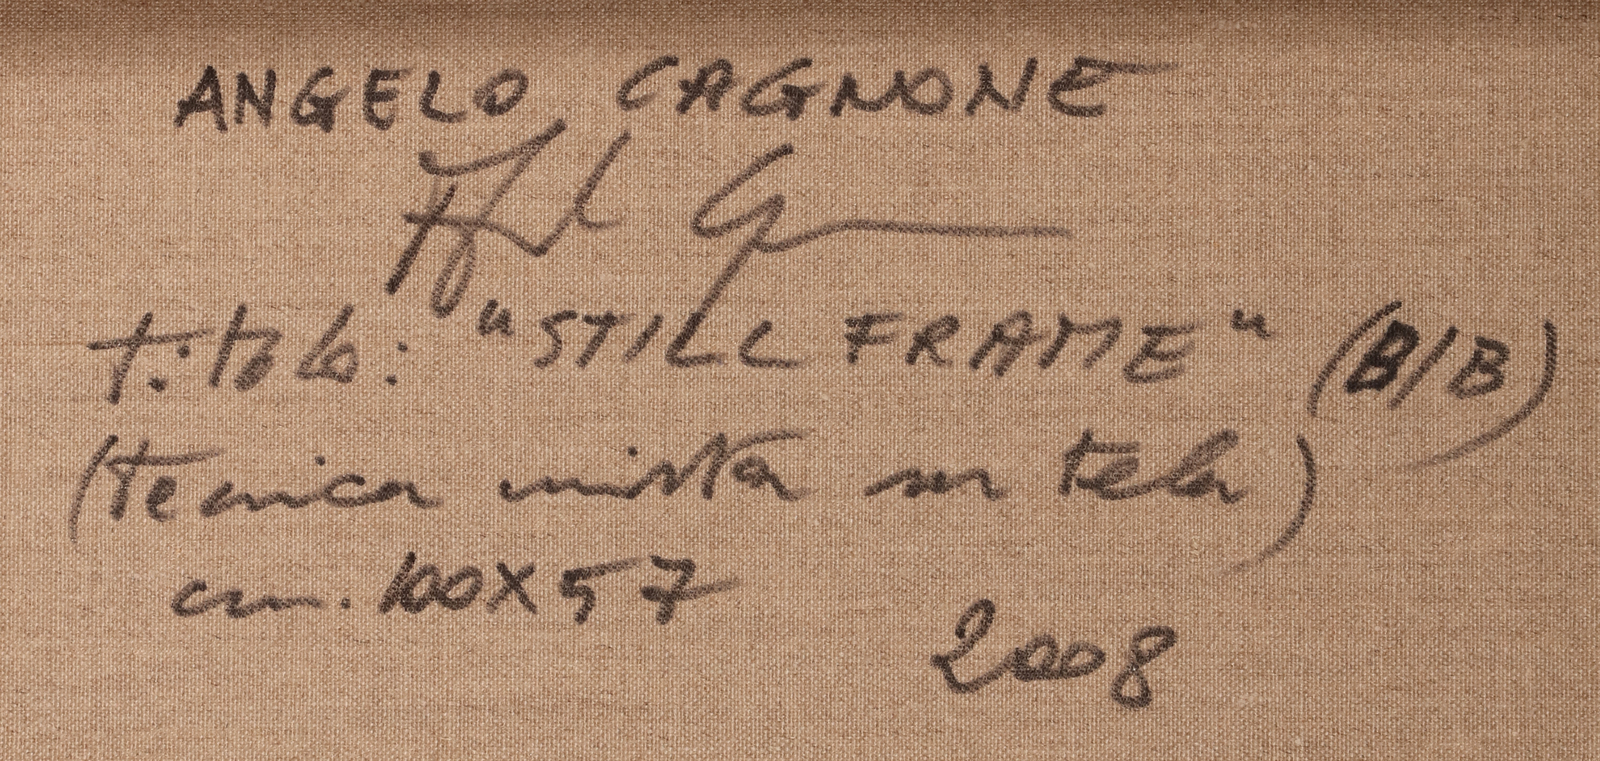 ANGELO CAGNONE
Angelo Cagnone
titolo: "STILL FRAME" (B/B)
(tecnica mista su tela)
cm. 100X57
2008